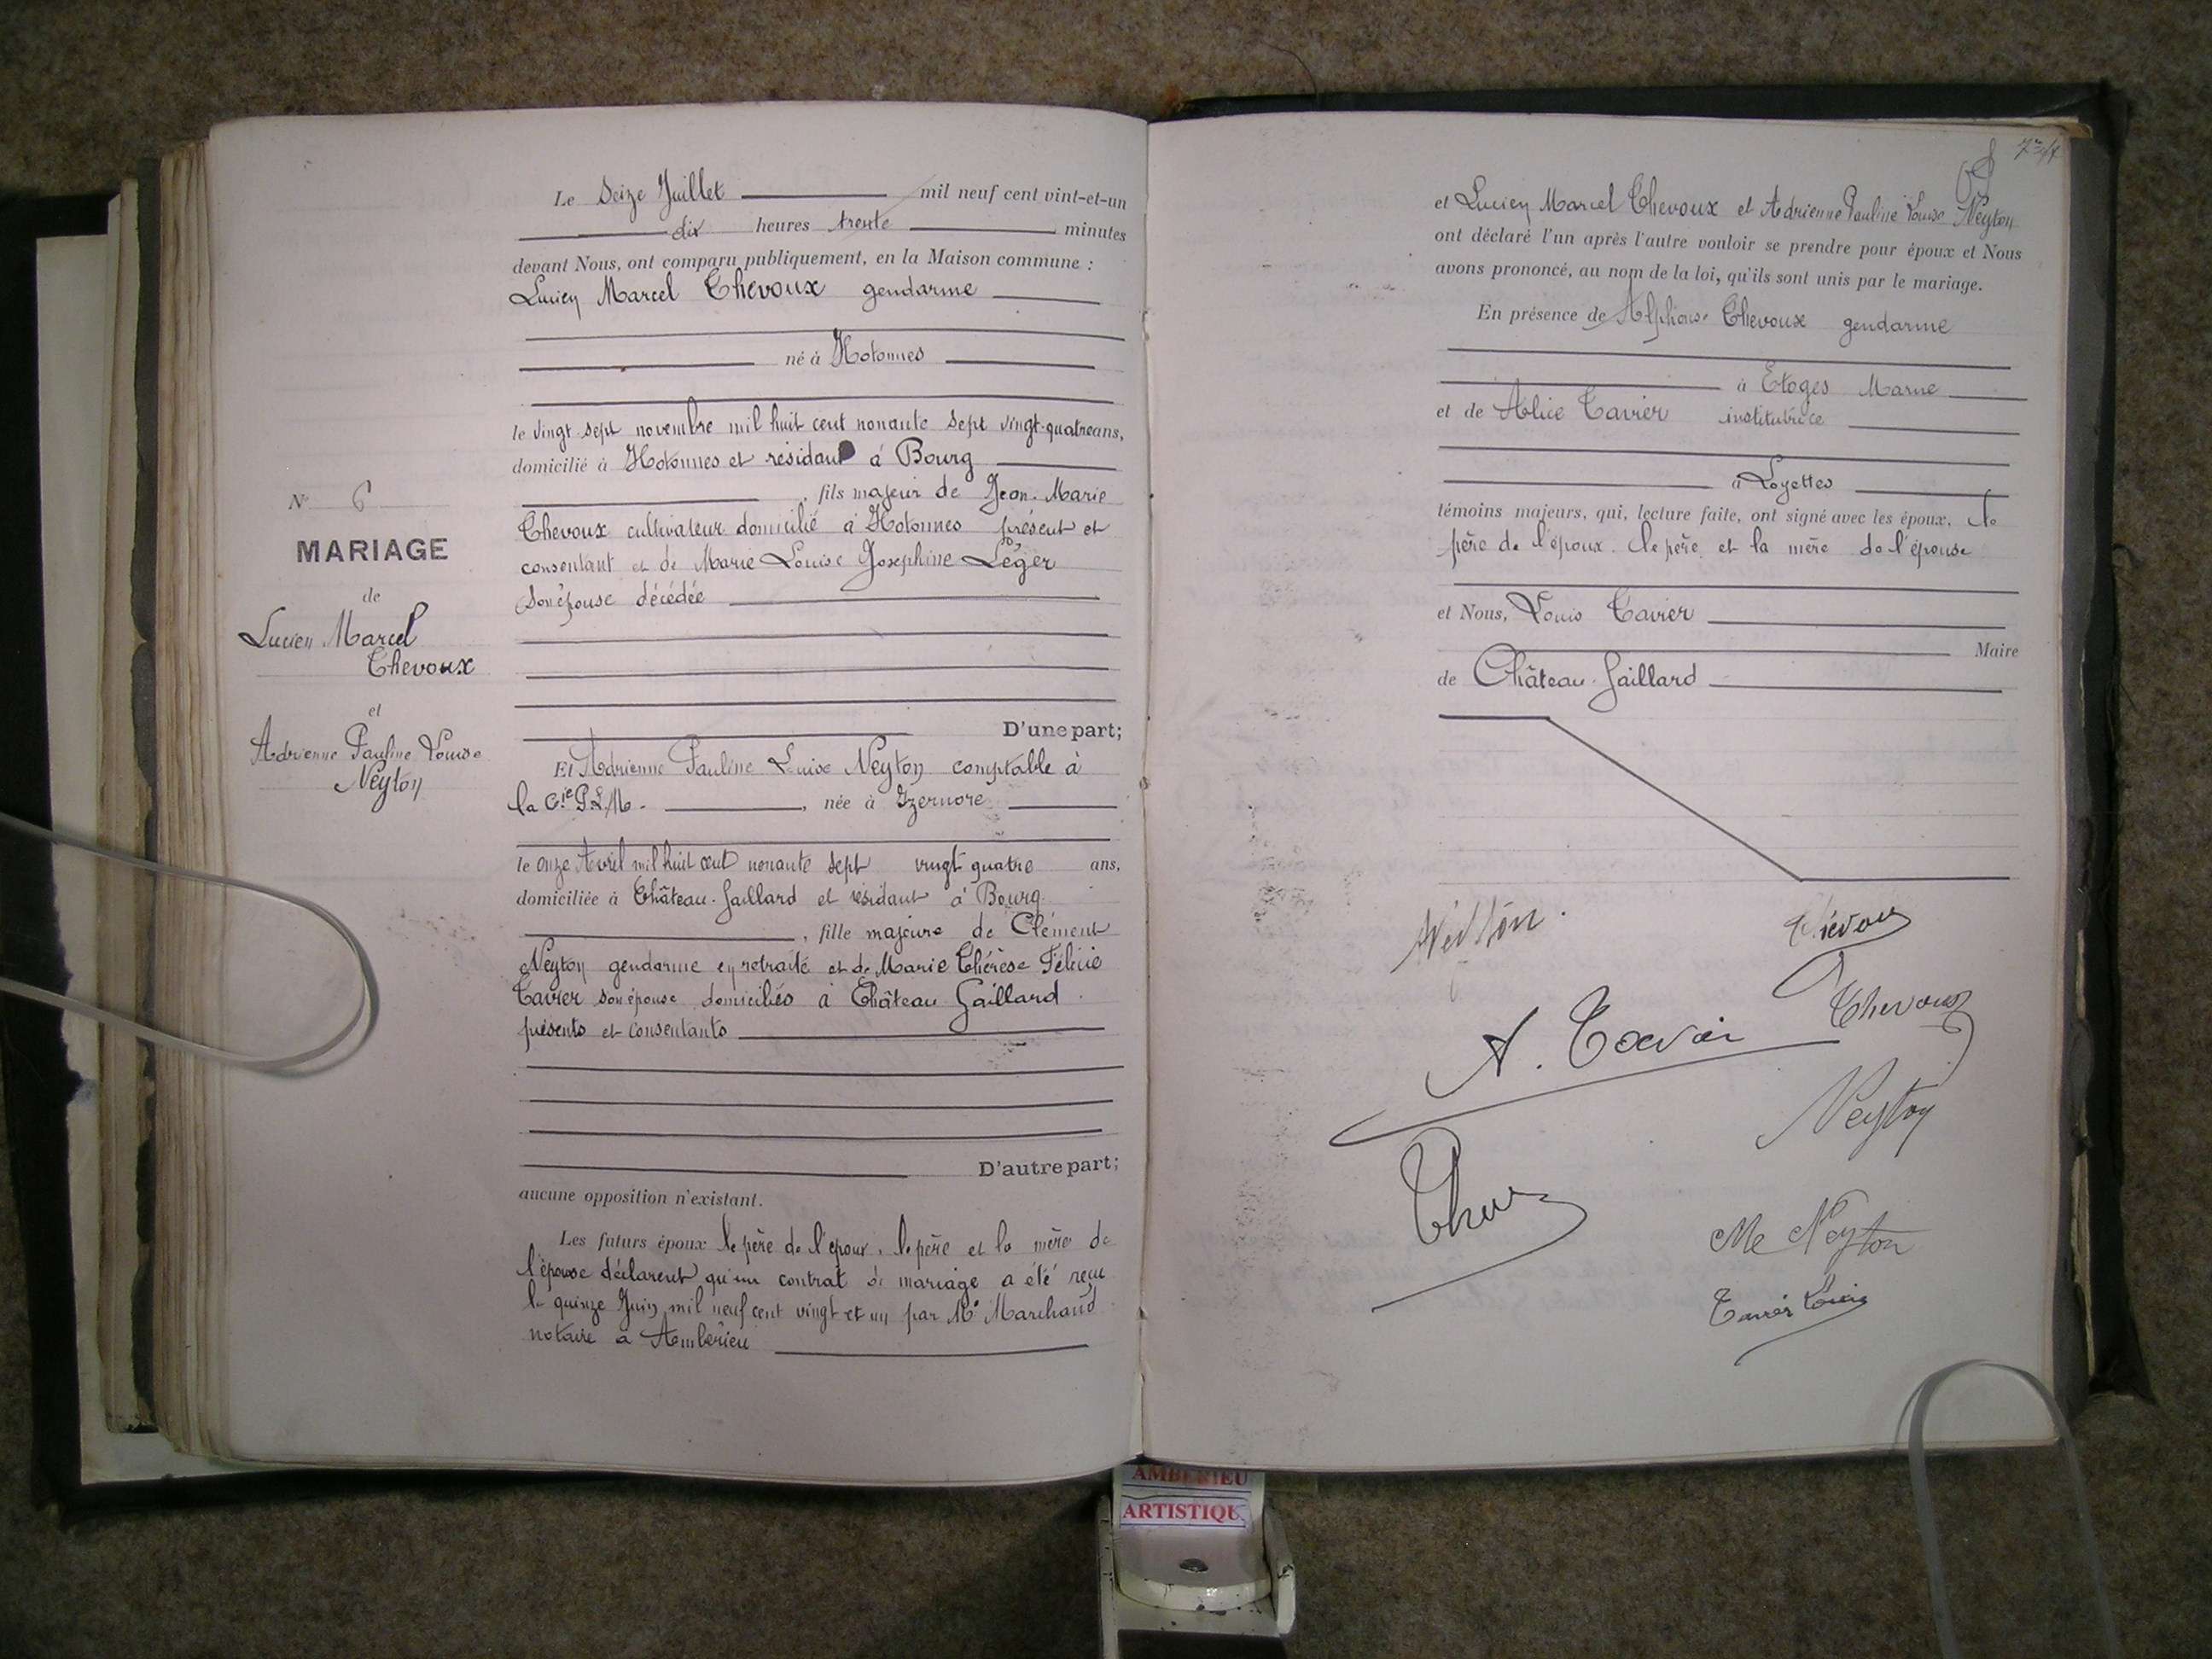 N° 6
MARIAGE
de
Lucien Marcel
Chevoux
et
Adrienne Pauline Louise
Neyton
Le Seize Juillet mil neuf cent vint-et-un
dix heures trente minutes
devant Nous, ont comparu publiquement, en la Maison commune :
Lucien Marcel Chevoux gendarme
né à Hotonnes
le vingt-sept novembre mil huit cent nonante sept vingt-quatre ans,
domicilié à Hotonnes et résidant à Bourg
, fils majeur de Jean-Marie
Chevoux cultivateur domicilié à Hotonnes présent et
consentant et de Marie Louise Josephine Léger
son épouse décédée
D'une part;
Et Adrienne Pauline Louise Neyton comptable à
la Cie P.L.M. , née à Izernore
le onze Avril mil huit cent nonante sept vingt quatre ans,
domiciliée à Château-Gaillard et résidant à Bourg
, fille majeure de Clément
Neyton gendarme en retraite et de Marie Thérèse Félicie
Tavier son épouse domiciliés à Château Gaillard.
présents et consentants
D'autre part;
aucune opposition n'existant.
Les futurs époux le père de l'époux, le père et la mère de
l'épouse déclarent qu'un contrat de mariage a été reçu
le quinze Juin mil neuf cent vingt et un par Me Marchand
notaire à Ambérieu
et Lucien Marcel Chevoux et Adrienne Pauline Louise Neyton
ont déclaré l'un après l'autre vouloir se prendre pour époux et Nous
avons prononcé, au nom de la loi, qu'ils sont unis par le mariage.
En présence de Alphonse Chevoux gendarme
à Etoges Marne
et de Alice Tavier institutrice
à Loyettes
témoins majeurs, qui, lecture faite, ont signé avec les époux, le
père de l'époux. le père et la mère de l'épouse
et Nous, Louis Tavier
Maire
de Château-Gaillard
Chevoux
A. Tavier
Neyton
Me Neyton
Tavier Louis
AMBERIEU
ARTISTIQU